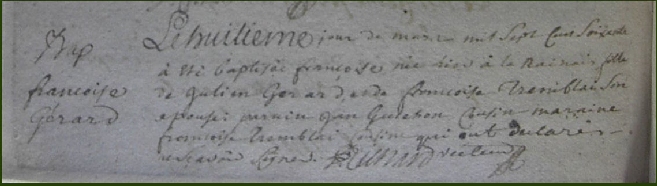 Bap
francoise
Gérard
Le huitieme jour de mars mil Sept Cens Soixete
à été baptisée francoise née hier à la fille
de Julien Gerard, et de francoise Tremblai Son
epouse: parain Jan Cousin - maraine
francoise Tremblai Cousine qui ont declaré
ne scavoir Signer. recteur